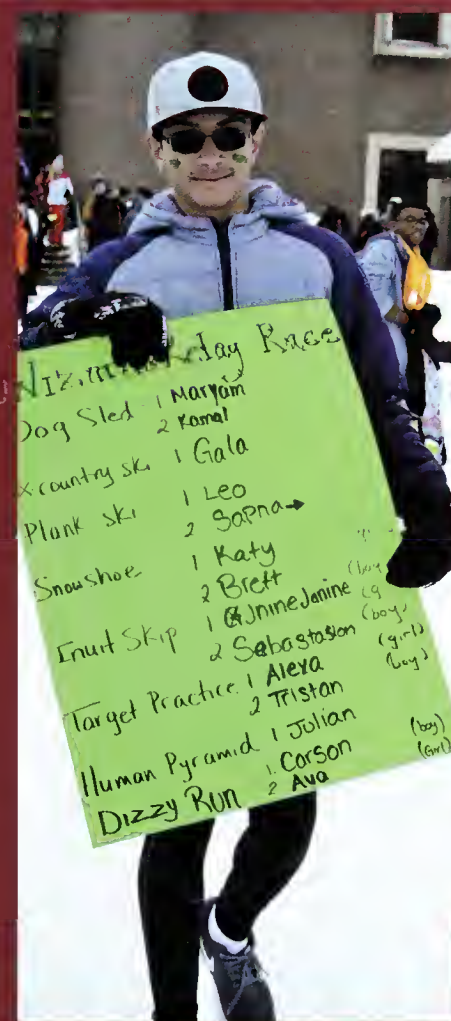 Relay Race
Dog Sled 1 Maryam
2 Kamal
x-country ski 1 Gala
Plank ski 1 Leo
2 Sapna→
Snowshoe 1 Katy
2 Brett
Inuit Skip 1 Jnine Janine
2 Sebastasion (boy)
Target Practice 1 Alexa (girl)
2 Tristan (boy)
Human Pyramid 1 Julian
Dizzy Run 1. Carson (boy)
2 Ava (Girl)